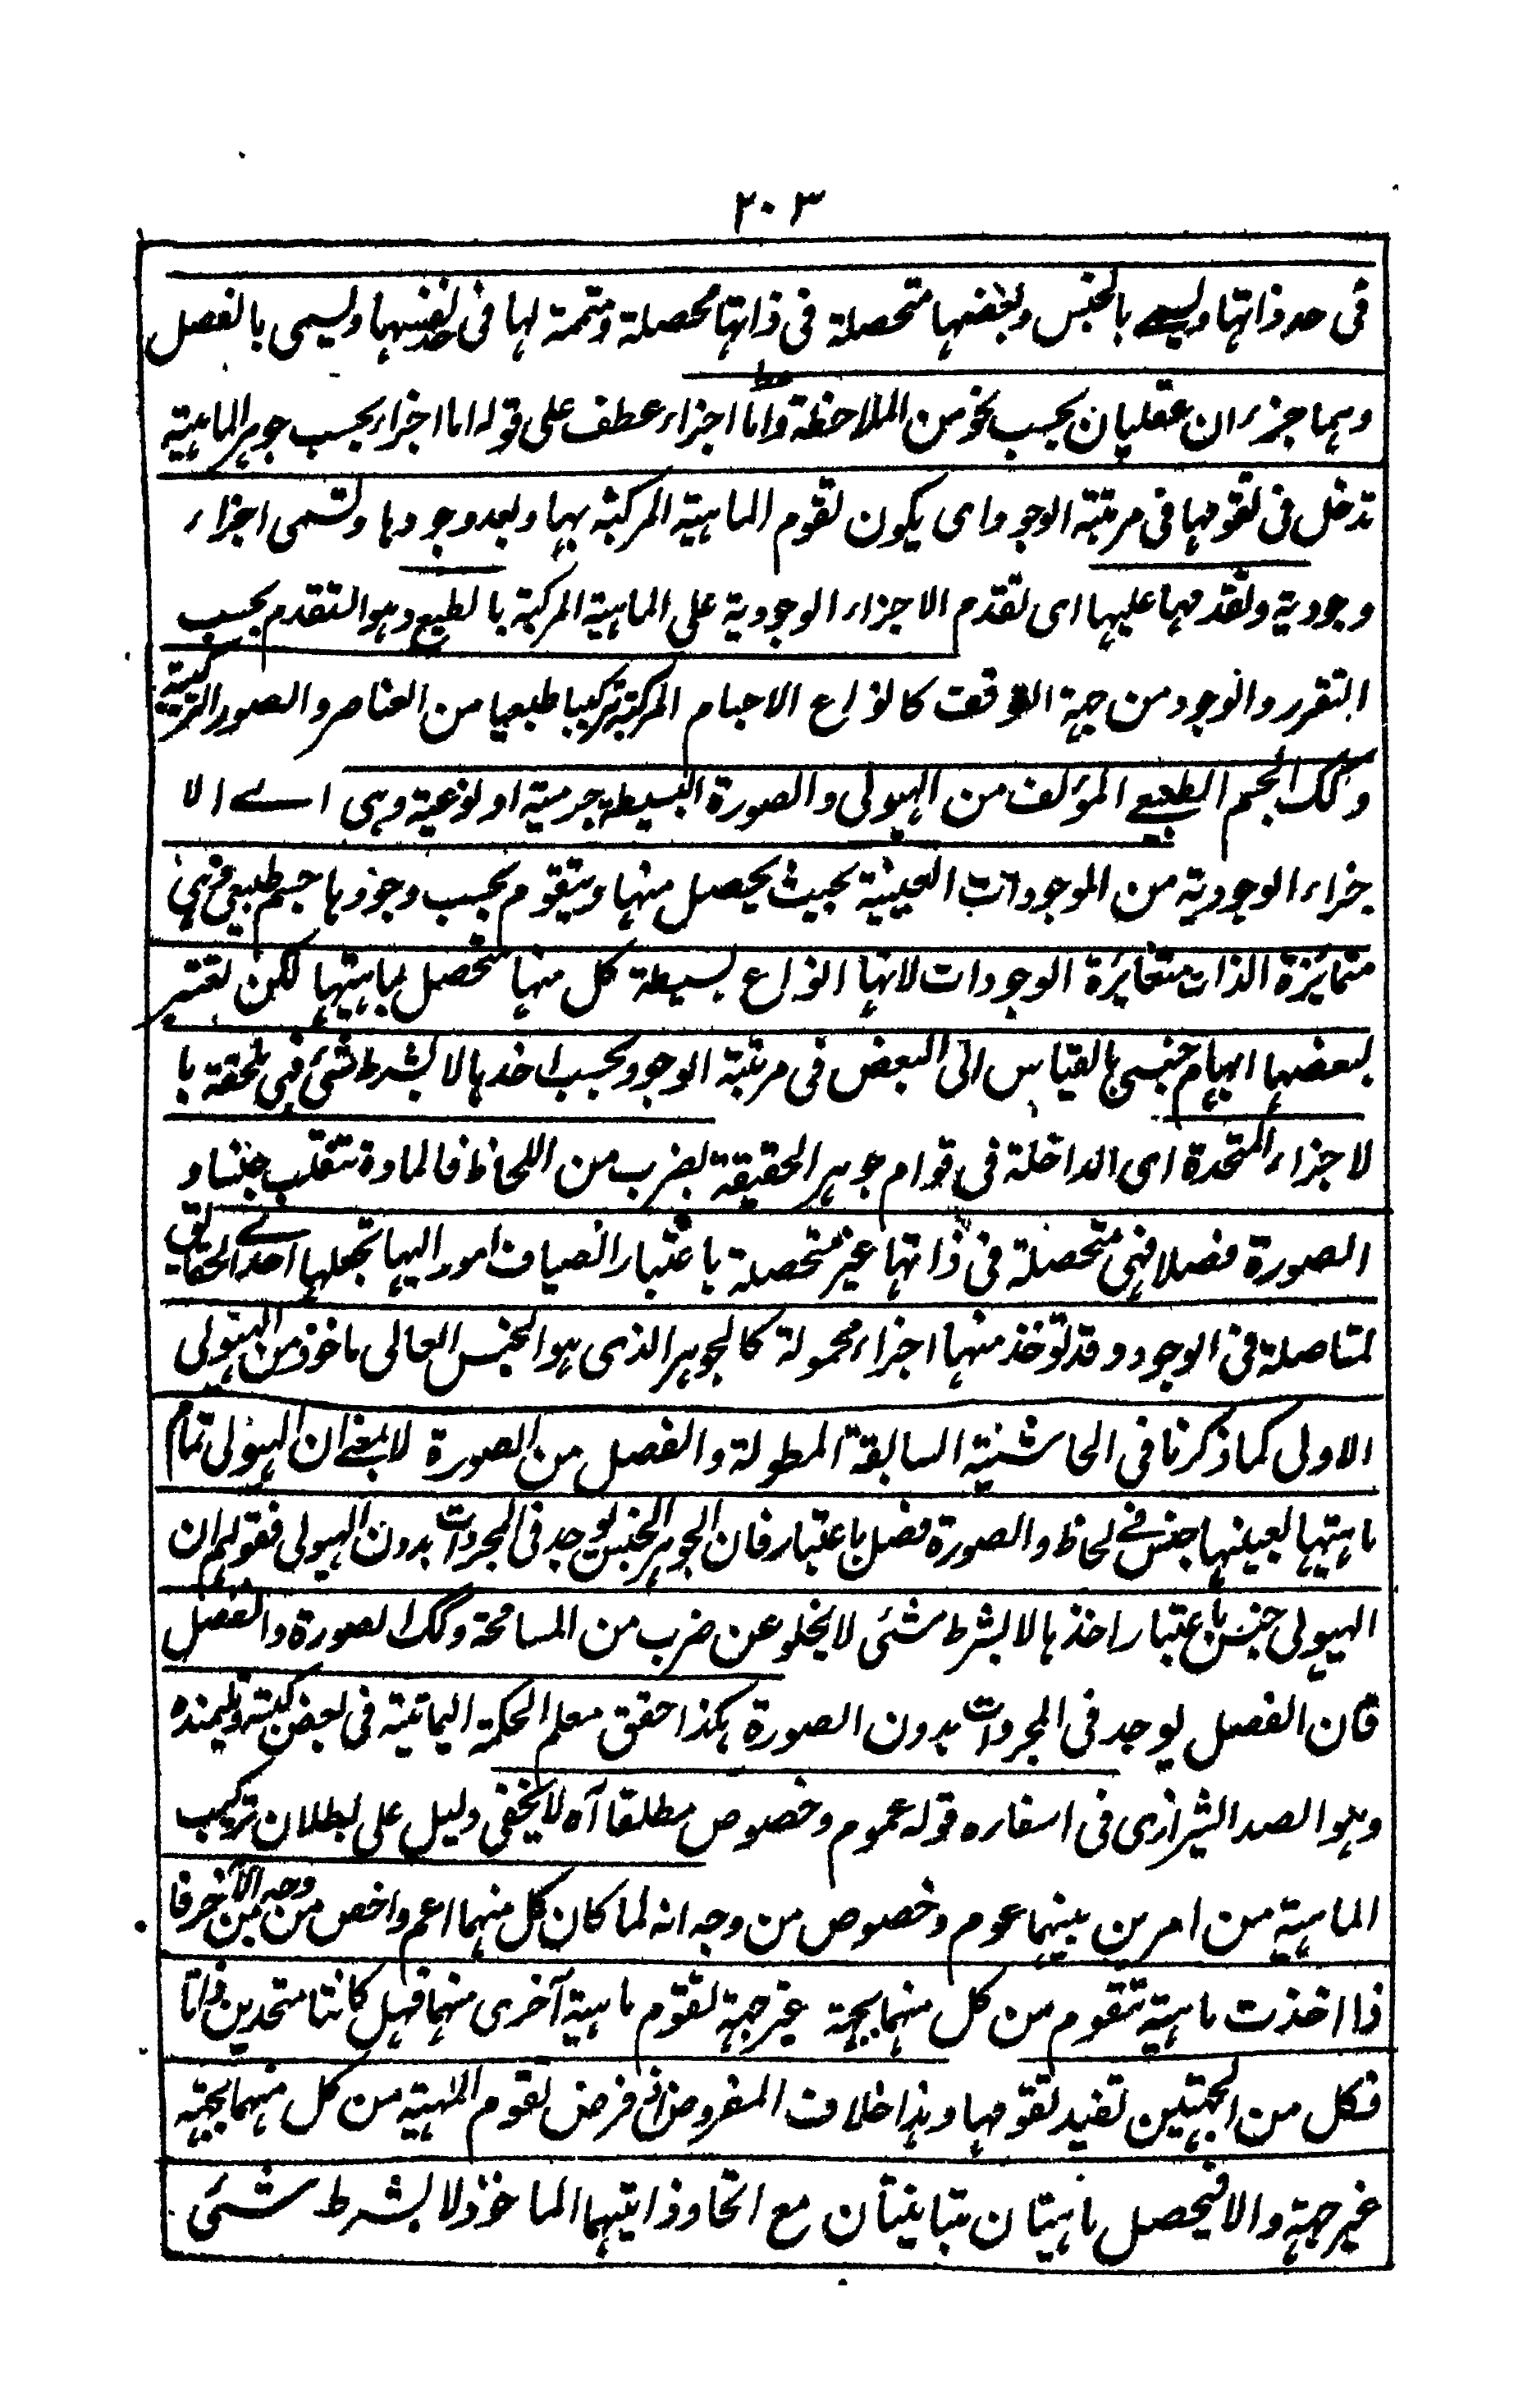 ٢٠٣
فى حد ذاتها ويسمى بالجنس وبعضها متحصلة فى ذاتها محصلة ومتممة لها فى حد نفسها ويسمى بالفصل
وهما جزءان عقليان بحسب نحو من الملاحظة واما اجزاء عطف على قوله اما اجزاء بحسب جوهر الماهية
تدخل فى تقومها فى مرتبة الوجود اى يكون تقوم الماهية المركبة بها وبعد وجودها وتسمى اجزاء
وجودية وتقدمها عليها اى تقدم الاجزاء الوجودية على الماهية المركبة بالطبع وهو التقدم بحسب
التقرر والوجود من جهة التوقف كانواع الاجسام المركبة تركيبا طبعيا من العناصر والصور التركيبية
وكك الجسم الطبيعے المؤلف من الهيولى والصورة البسيطة جرمية او نوعية وهى اے الا
جزاء الوجودية من الموجودات العينية بحيث يحصل منها ويتقوم بحسب وجودها جسم طبيعى فهى
متمايزة الذات متغايرة الوجودات لانها انواع بسيطة كل منها متحصل بماهيتها لكن تعتبر
لبعضها ابهام جنسى بالقياس الى البعض فى مرتبة الوجود وبحسب اخذها لا بشرط شئ فهى ملحقة با
لاجزاء المتحدة اى الداخلة فى قوام جوهر الحقيقة بضرب من اللحاظ فالمادة تنقلب جنسا و
الصورة فصلا فهى متحصلة فى ذاتها غير متحصلة باعتبار انضياف امور اليها تجعلها احدے الحقايق
لمتاصلة فى الوجود وقد توخذ منها اجزاء محمولة كالجوهر الذى هو الجنس العالى ماخوذ من الهيولى
الاولى كما ذكرنا فى الحاشية السابقة المطولة والفصل من الصورة لا بمعنے ان الهيولى تمام
ماهيتها بعينها جنس فے لحاظ والصورة فصل باعتبار فان الجوهر الجنس يوجد فى المجردات بدون الهيولى فقولهم ان
الهيولى جنس باعتبار اخذها لا بشرط شئى لا يخلو عن ضرب من المسامحة وكك الصورة والفصل
فان الفصل يوجد فى المجردات بدون الصورة هكذا حقق معلم الحكمة اليمانية فى بعض كتبه وتلميذه
وهو الصدر الشيرازى فى اسفاره قوله عموم وخصوص مطلقا آه لا يخفى دليل على بطلان تركيب
الماهية من امرين بينهما عموم وخصوص من وجه انه لما كان كل منهما اعم واخص من وجه من الآخر فا
ذا اخذت ماهية تتقوم من كل منهما بجهة غير جهة تقوم ماهية آخرى منهما فهل كانتا متحدين ذاتا
فكل من الجهتين تفيد تقومها وهذا خلاف المفروض اذ فرض تقوم المهية من كل منهما بجهة
غير جهة والا فيحصل ماهيتان متباينتان مع اتحاد ذاتيهما الماخوذ لا بشرط شئى